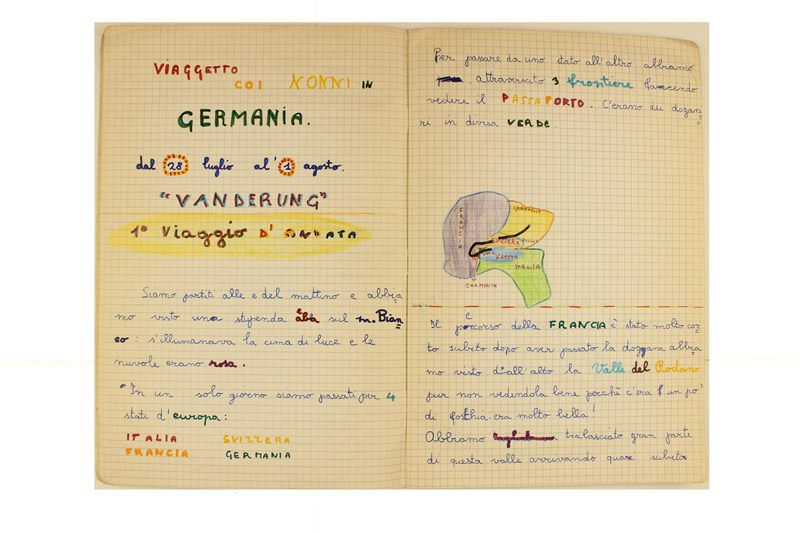 VIAGGETTO
COI NONNI IN
GERMANIA.
dal 28 luglio al' 1 agosto.
"VANDERUNG"
1° Viaggio D' ANDATA
Siamo partiti alle e del mattino e abbia
mo visto una stupenda alba sul m. Bian
co: s'illuminava la cima di luce e le
nuvole erano rosa.
In un solo giorno siamo passati per 4
stati d'europa:
ITALIA SVIZZERA
FRANCIA GERMANIA
Per passare da uno stato all'altro abbiamo
attraversato 3 frontiere facendo
vedere il PASSAPORTO. C'erano dei dogan
ri in divisa VERDE.
FRANCIA
GERMANIA
SVIZZERA
ITALIA
CHAMONIX
Il percorso della FRANCIA è stato molto cor
to subito dopo aver passato la doggana abbia
mo visto d'all'alto la Valle del Rodano
pur non vedendola bene perchè c'era un pò'
di foschia era molto bella!
Abbiamo tralasciato gran parte
di questa valle arrivando quasi subito